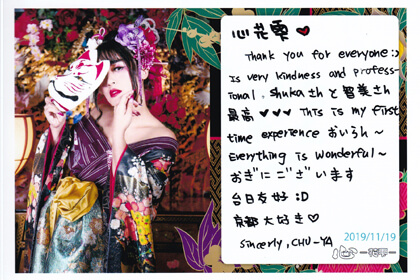 心花雫♥
Thank you for everyone :)
Is very kindness and profess-
ional. Shukaさんと智美さん
最高♥♥♥ This is my first
time experience おいらん〜
Everything is wonderful〜
おぎにございます
台日友好 :D
京都大好き♡
sincerly, CHU-YA
2019/11/19